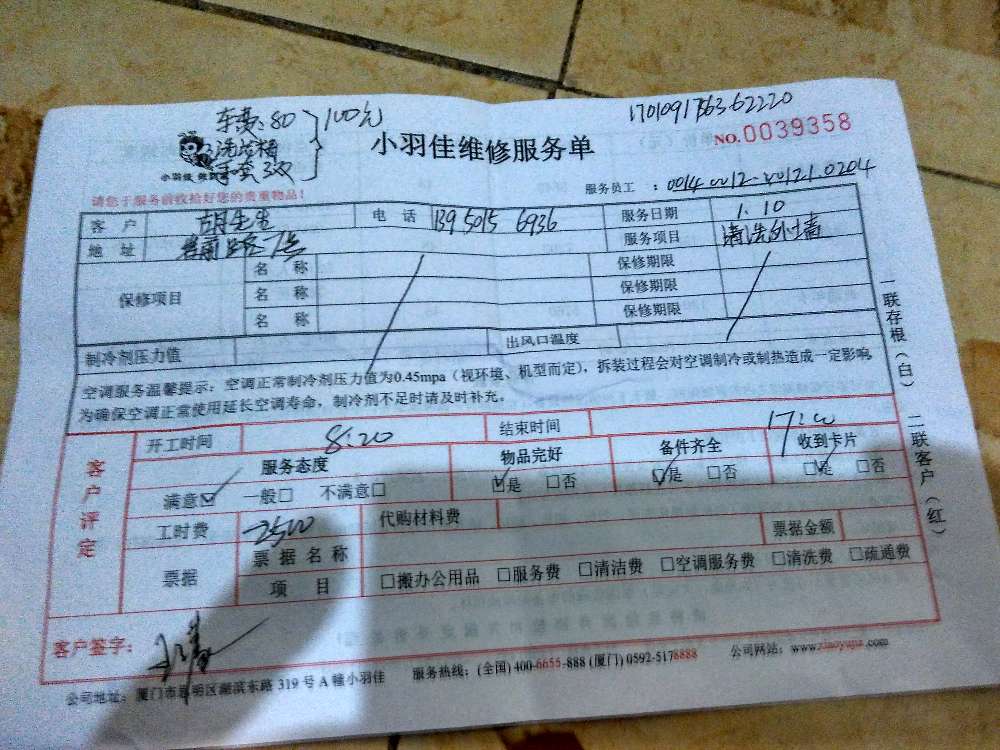 车费:80 100元 1701091756362220
洗洁精
手套3双
小羽佳维修服务单 NO.0039358
请您于服务前收拾好您的贵重物品!
服务员工 :
客户 胡先生 电话 1395015 6936 服务日期 1.10
地址 服务项目 清洗外墙
保修项目 名称 保修期限
名称 保修期限
名称 保修期限
制冷剂压力值 出风口温度
空调服务温馨提示:空调正常制冷剂压力值为0.45mpa(视环境、机型而定),拆装过程会对空调制冷或制热造成一定影响,
为确保空调正常使用延长空调寿命,制冷剂不足时请及时补充。
一联存根(白) 二联客户(红)
客户评定
开工时间 8:20 结束时间 17:00
服务态度 物品完好 备件齐全 收到卡片
满意☑ 一般□ 不满意□ ☑是 □否 ☑是 □否 ☑是 □否
工时费 2500 代购材料费
票据 票据名称 票据金额
项目 □搬办公用品 □服务费 □清洁费 □空调服务费 □清洗费 □疏通费
客户签字:
公司地址:厦门市思明区湖滨东路319号A幢小羽佳 服务热线:(全国)400-6655-888 (厦门)0592-5178888 公司网站:www.xiaoyujia.com